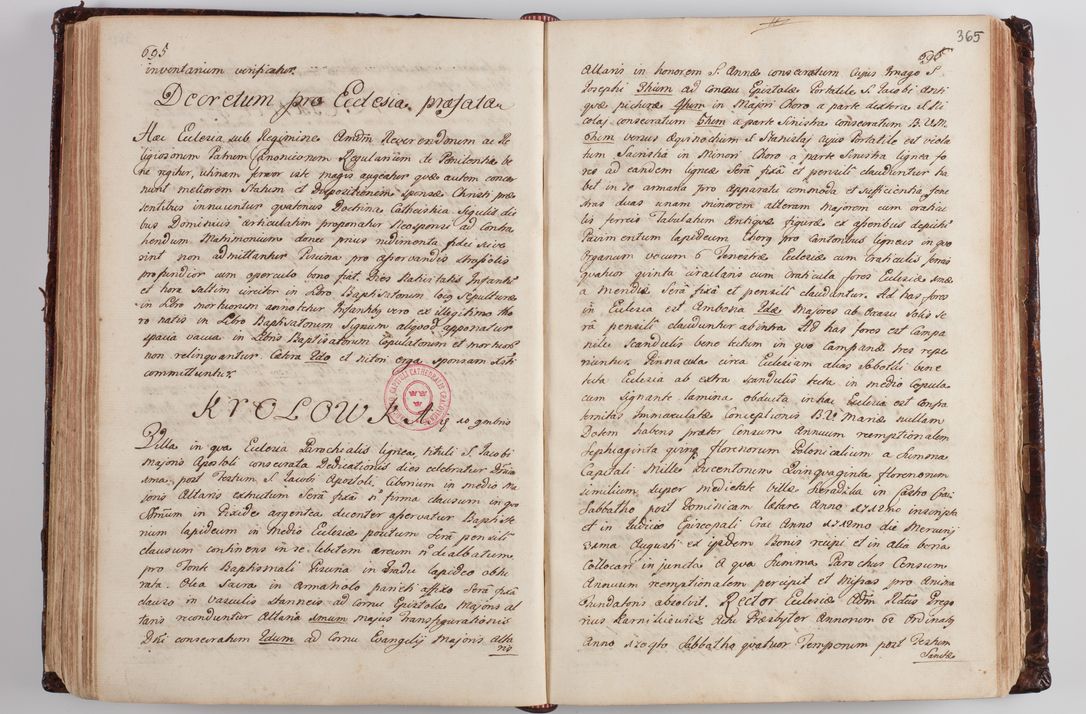 695
inventarium verificatur.
Decretum pro Ecclesia præfata
Hæc Ecclesia sub Regimine Amdm Reverendorum ac Re
ligiosorum Patrum Canonicorum Regularium de Pænitentia be
ne regitur, utinam fervor iste magis augeatur quæ autem concer
nunt meliorem Statum et Dispositionem Sponsæ Christi præ
sentibus innuuntur quatenus Doctrina Cathechistica Singulis die
bus Dominicis articulatim proponatur Neosponsi ad Contra
hendum Matrimonium donec prius rudimenta fidei scive
rint non admittantur Piscina pro asservandis
profundior cum operculo bono fiat. Dies Nativitatis Infantis
et hora saltim circiter in Libro Baptisatorum locus Sepulturæ
in Libro mortuorum annotetur Infantibus vero ex illegitimo tho
ro natis in Libro Baptisatorum Signum aliquod apponatur
spatia vacua in Libris Baptisatorum Copulatorum et mortuorum
non relinquantur. Cætera Zelo et nitori erga Sponsam Xsti
committuntur.
KROLOWKA
Villa in qua Ecclesia Parochialis lignea, tituli S. Jacobi
Majoris Apostoli consecrata Dedicationis dies celebratur Domi
ma post Festum S. Jacobi Apostoli. Ciborium in medio Ma
joris Altaris extructum Serâ fixâ firma clausum in quo
SSmum in Pixide argentea decenter asservatur Baptiste
rium lapideum in Medio Ecclesiæ positum Serâ pensili
clausum continens in se lebetem æreum dealbatum
pro Fonte Baptismali Piscina in Gradu lapideo obtu
rata. Olea Sacra in armariolo parieti affixo Serâ fixâ
clauso in vasculis stanneis ad Cornu Epistolæ Majoris al
taris reconduntur Altaria 1mum majus Transfigurationis
Dni consecratum 2dum ad Cornu Evangelij Majoris Alta
ris
365
696
Altaris in honorem S. Annæ consecratum Cujus Imago S.
Josephi 3tium ad Cornu Epistolæ Portatile S. Jacobi Anti
quæ picturæ 4tum in Majori Choro a parte dextera S. Ni
colai consecratum 5tum a parte Sinistra consecratum B.V.M.
6tum versus Aquinoctium S. Stanislaj cujus Portatile est viola
tum Sacristia in Minori Choro a parte Sinistra lignea fo
res ad eandem ligneæ Serâ fixâ et pensili clauduntur ha
bet in se armaria pro Apparatu commoda et sufficientia fene
stras duas unam minorem alteram majorem cum craticu
lis ferreis Tabulatum Antiquæ figuræ ex asseribus depictis
Pavimentum lapideum Chorus pro Cantoribus ligneus in quo
Organum vocum 6 Fenestræ Ecclesiæ cum Craticulis ferreis
quatuor quinta circularis cum Craticula fores Ecclesiæ
a Serâ fixâ et pensili clauduntur. Ad has fores
in Ecclesia est Ambona Fores Majores ab Occasu Solis se
râ pensili clauduntur ab intra Ad has fores est Campa
nile Scandulis bene tectum in quo Campanæ tres repe
riuntur. Pinnacula circa Ecclesiam alias Sobotki bene
tecta Ecclesia ab extra scandulis tecta in medio Copula
cum Signante lamina obducta in hac Ecclesia est Confra
ternitas Immaculatæ Conceptionis B.V. Mariæ nullam
Dotem habens præter Censum Annuum reemptionalem
septuaginta quinque florenorum Polonicalium a Summa
Capitali Mille Ducentorum Quinquaginta florenorum
similium super medietate Villæ in Castro Crac.
Sabbatho post Dominicam lætare Anno 1712mo inscripta
et in Judicio Episcopali Crac Anno 1712mo die Mercurij
31ma Augusti ex ijsdem Bonis recipi et in alia bona
Collocari injuncta A qua Summa Parochus Censum
Annuum reemptionalem percipit et Missas pro Anima
Fundatoris absolvit. Rector Ecclesiæ Adm Rdus Grego
rius Karniłiewicz Actu Præsbyter Annorum 62 Ordinatus
Anno 1709no Sabbatho quatuor Temporum post Festum
Sanctæ